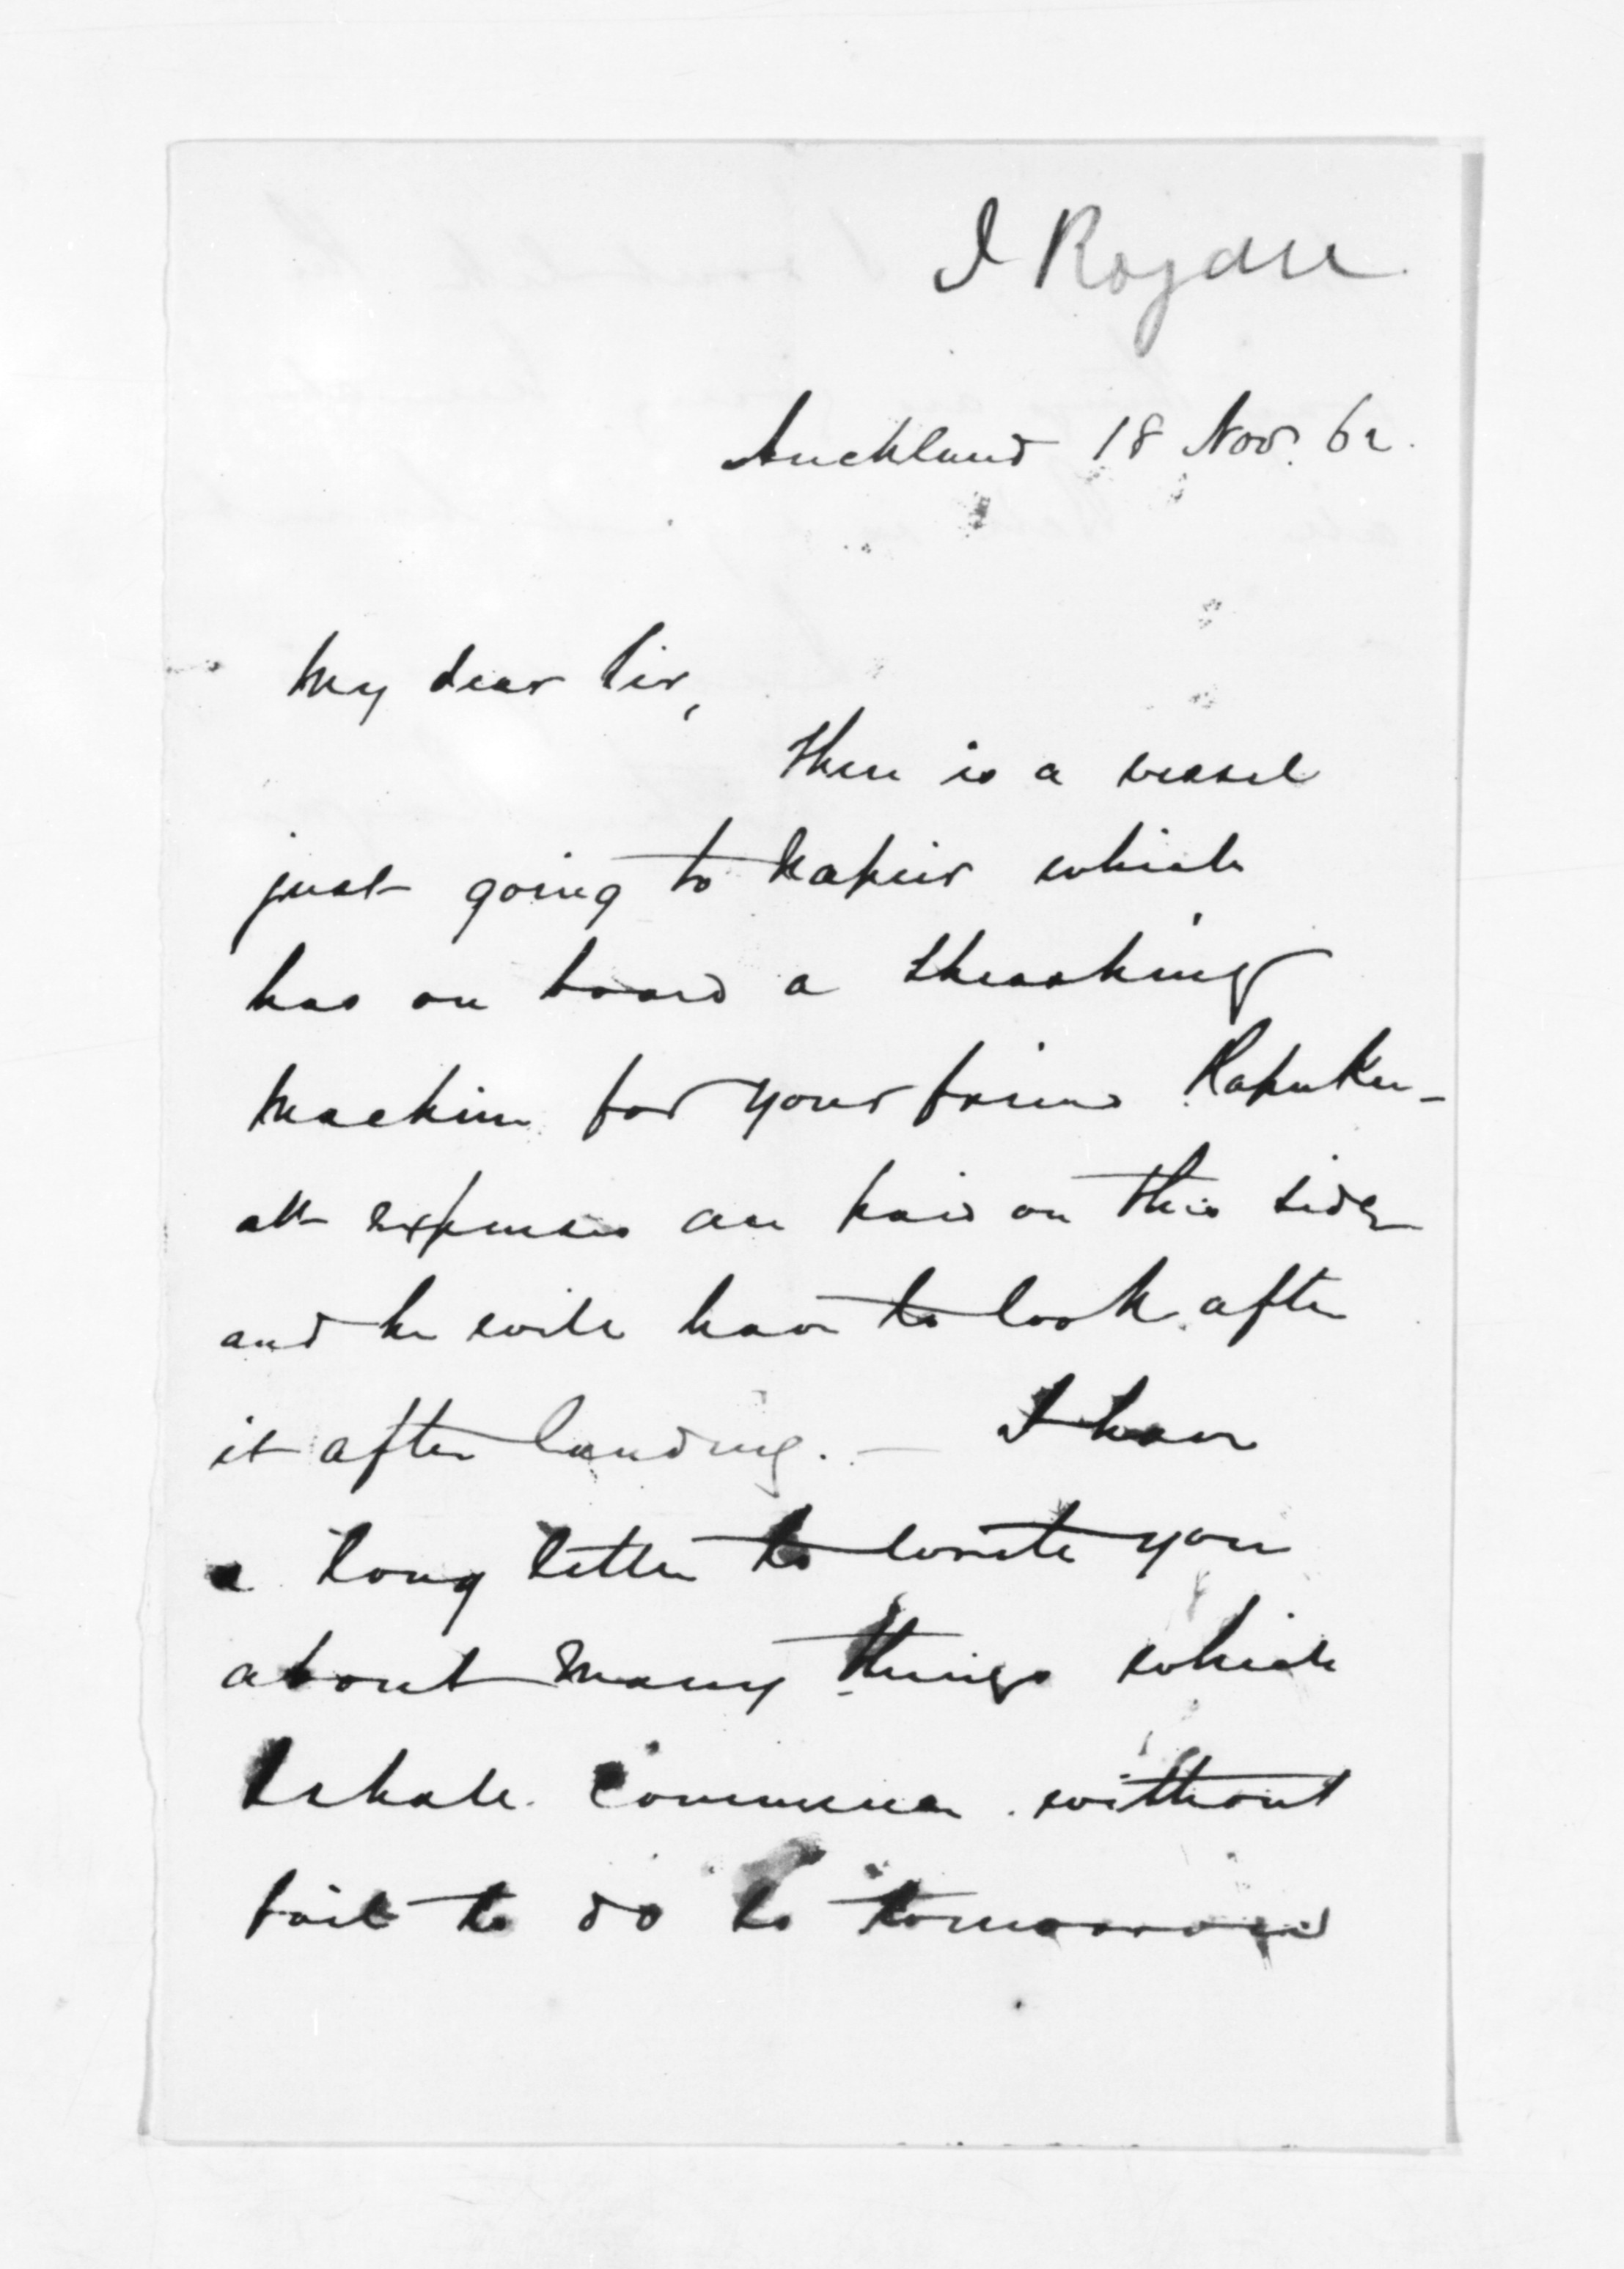 J Rogan
Auckland 18 Nov. 62.
My dear Sir,
There is a vessel
just going to Napier which
has on board a thrashing
machine for your friend Kapuku -
all expenses are paid on this side
and he will have to look after
it after landing. - I have
a long letter to write you
about many things which
I shall commence without
fail to do to tomorrow